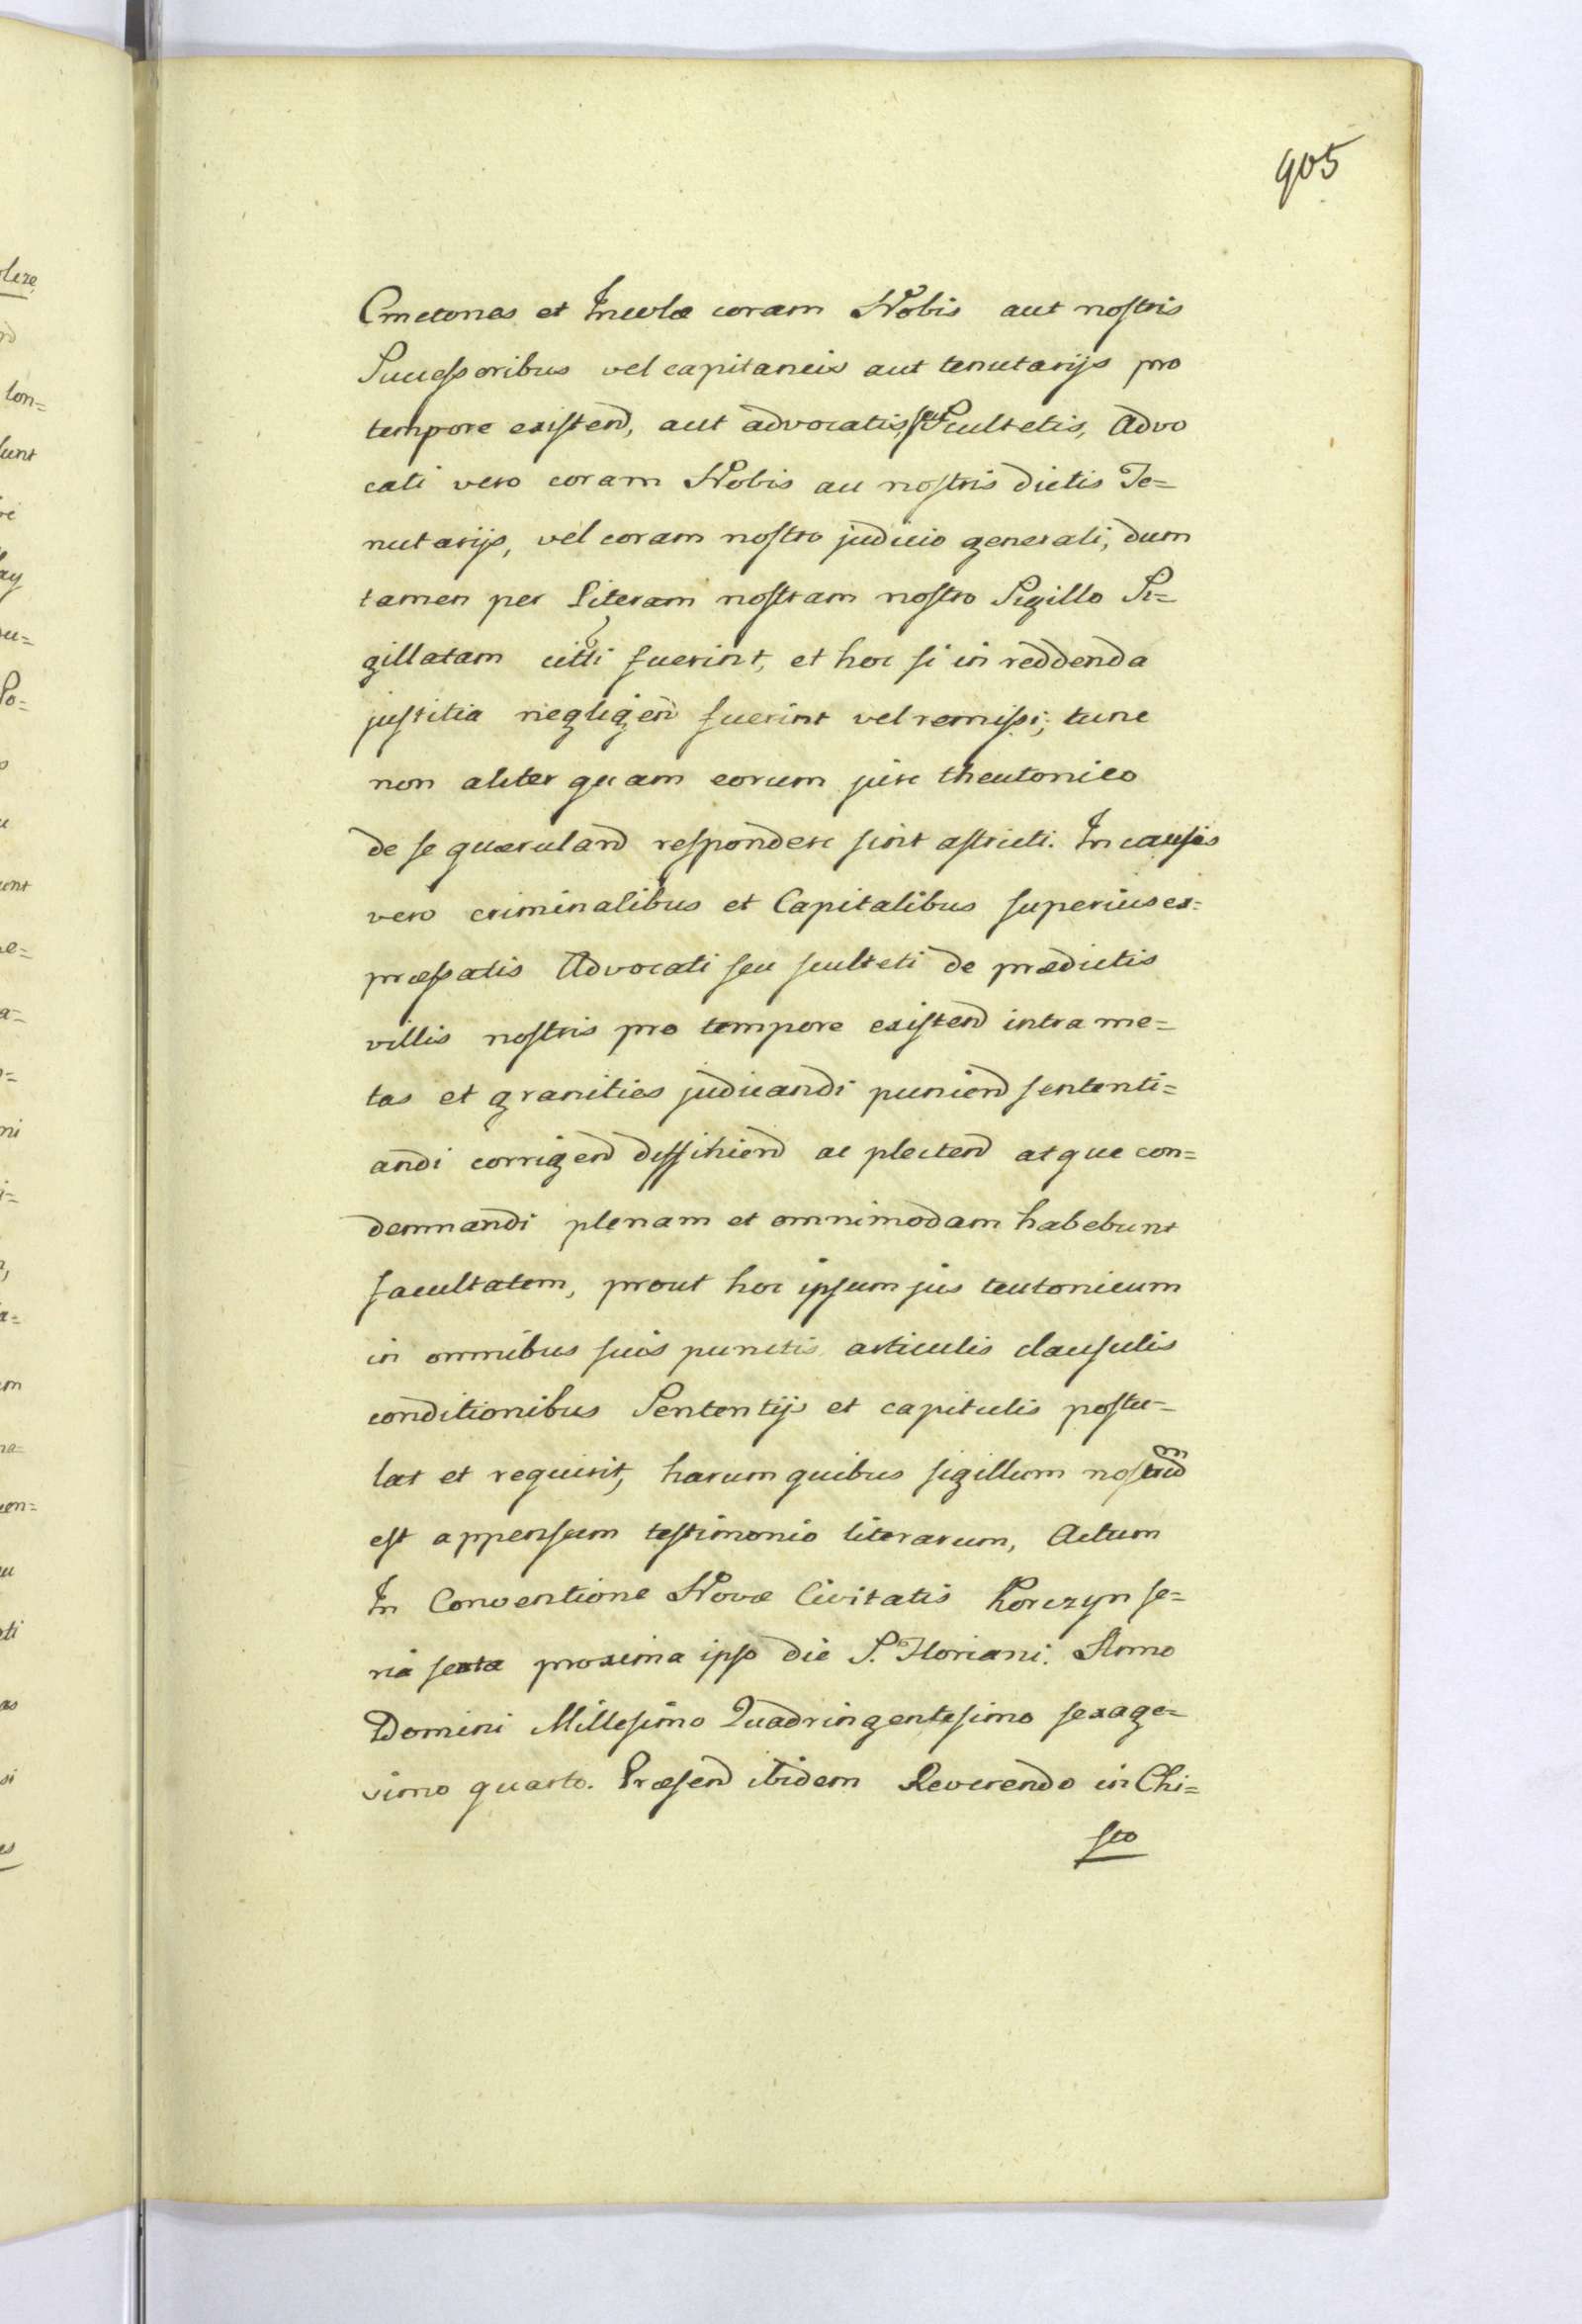 905
Cmetones et Incolæ coram Nobis aut nostris
Successoribus vel capitaneis aut tenutarijs pro
tempore existend, aut advocatis, seu Scultetis, Advo
cati vero coram Nobis au nostris dictis Te=
nutarijs, vel coram nostro judicio generali, dum
tamen per Literam nostram nostro Sigillo Si=
gillatam citti fuerint, et hoc si in reddenda
justitia negligen fuerint vel remissi; tunc
non aliter quam eorum jure theutonico
de se quæruland respondere sint astricti. In causis
vero criminalibus et Capitalibus superius ex=
præssatis Advocati seu sculteti de prædictis
villis nostris pro tempore existend intra me=
tas et granities judicandi puniend sententi=
andi corrigend diffihiend ac plectend atque con=
demnandi plenam et omnimodam habebunt
facultatem, prout hoc ipsum jus teutonicum
in omnibus suis punctis articulis clausulis
conditionibus Sententijs et capitulis postu=
lat et requirit, harum quibus sigillum nostrum
est appensum testimonio literarum, Actum
In Conventione Novæ Civitatis Korczyn fe=
ria sexta proxima ipso die S. Floriani. Anno
Domini Millesimo Quadringentesimo sexage=
simo quarto. Præsend ibidem Reverendo in Chi=
sto